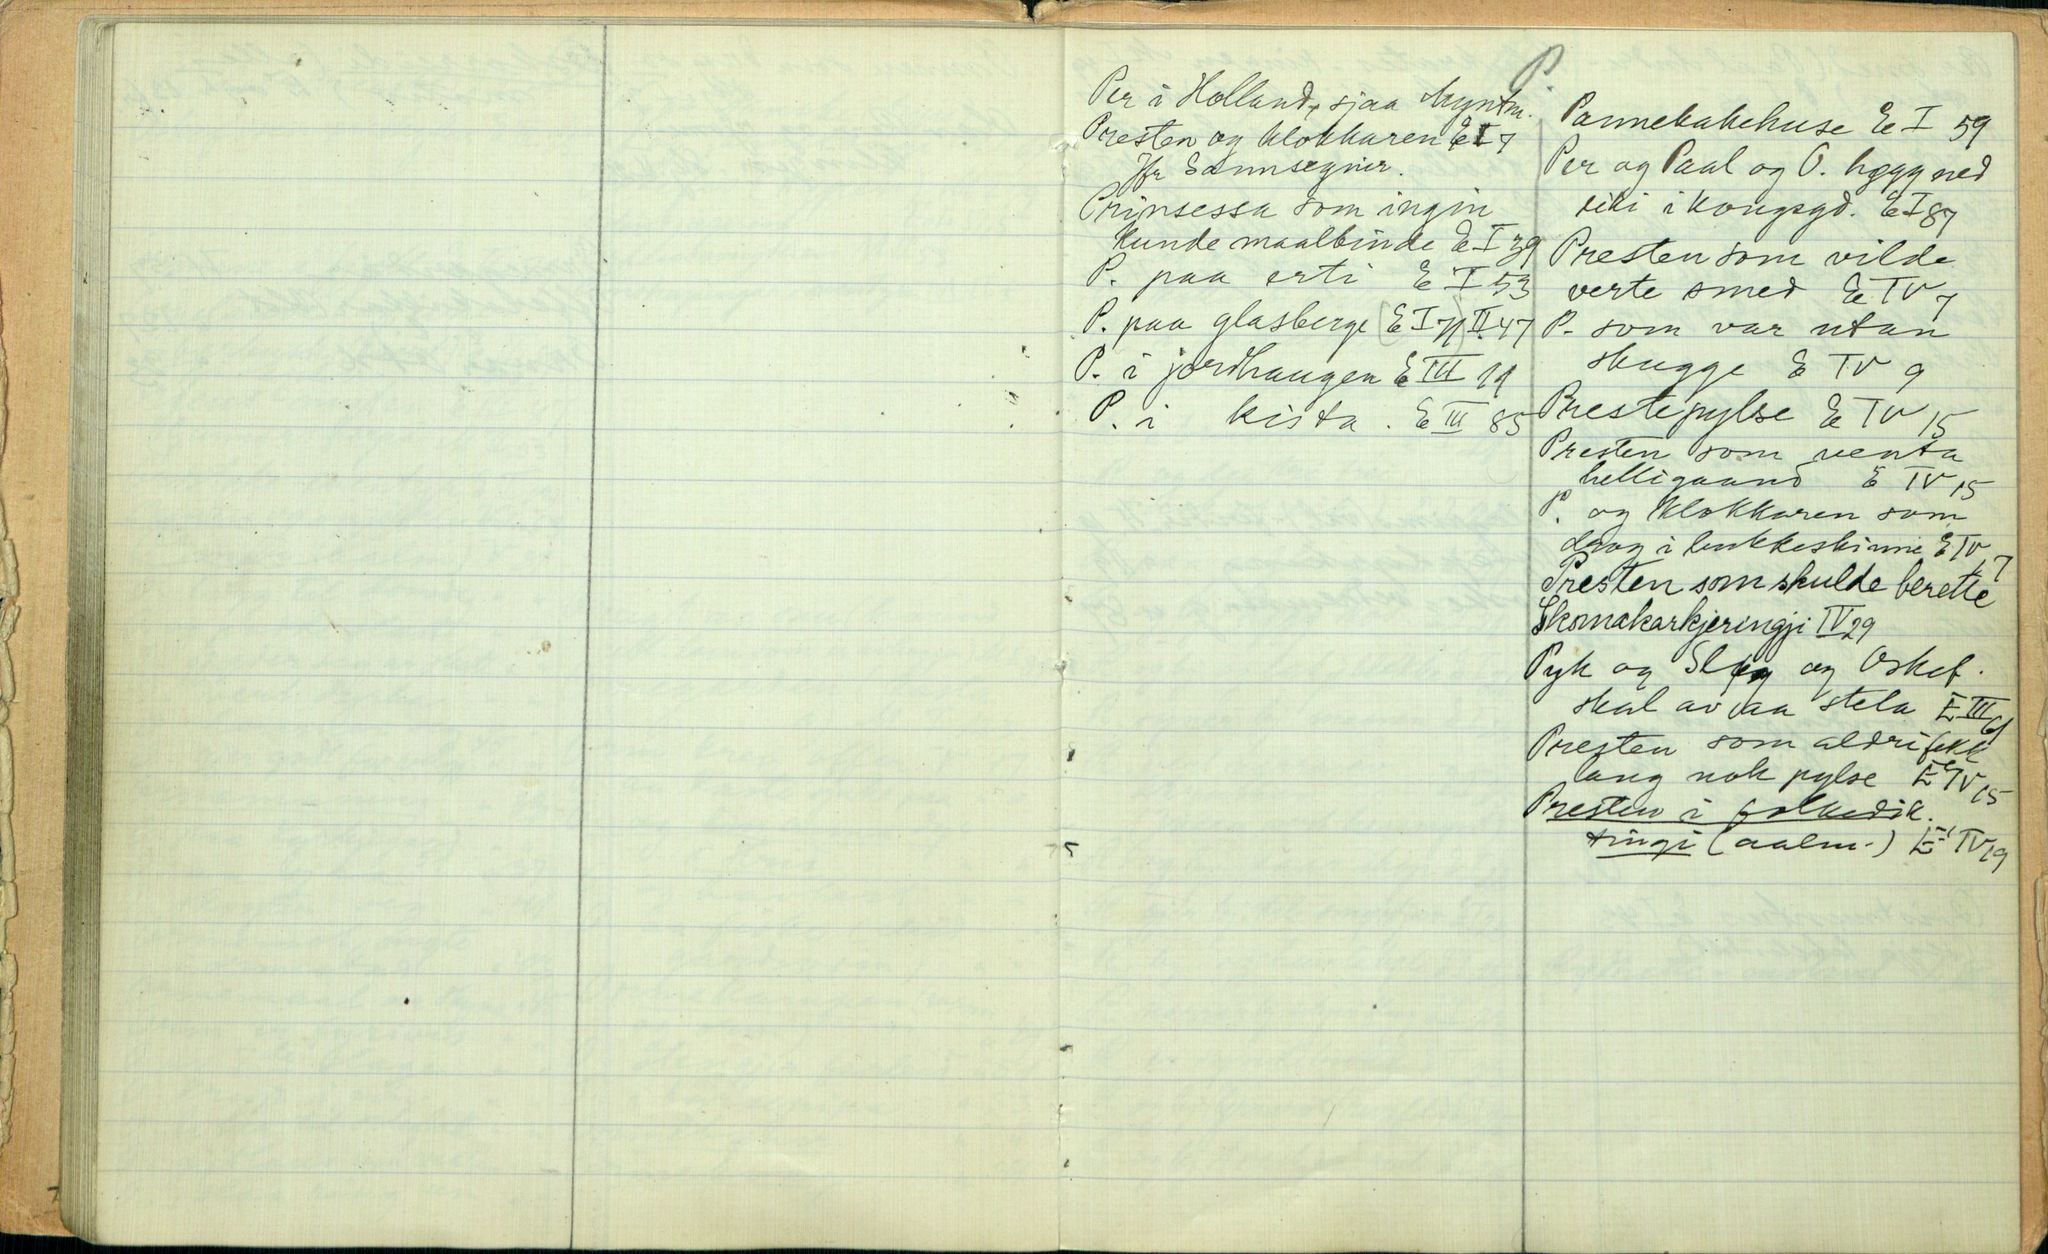 P.
Per i Holland, sjaa Mynstr.
Presten og klokkaren E I 7
Jfr Sannsegner.
Prinsessa som ingin
kunde maalbinde E I 39
P. paa erti E I 53
P. paa glasberge (E I 71) II 47
P. i jordhaugen E III 19
P. i kista. E III 85
Pannekakehuse E I 59
Per og Paal og O. hogg ned
eiki i kongsgd. E I 87
Presten som vilde
verte smed E IV 7
P. som var utan
skugge E IV 9
Prestepylse E IV 15
Presten som venta
helligaand E IV 15
P. og klokkaren som
drog i bukkeskinne E IV 7
Presten som skulde berette
Skomakarkjeringji IV 29
Pyk og Slyg og Oskef.
skal av aa stela E III 61
Presten som aldri fekk
lang nok pylse E IV 15
Presten i folkedik-
tingi (aalm.) E IV 19